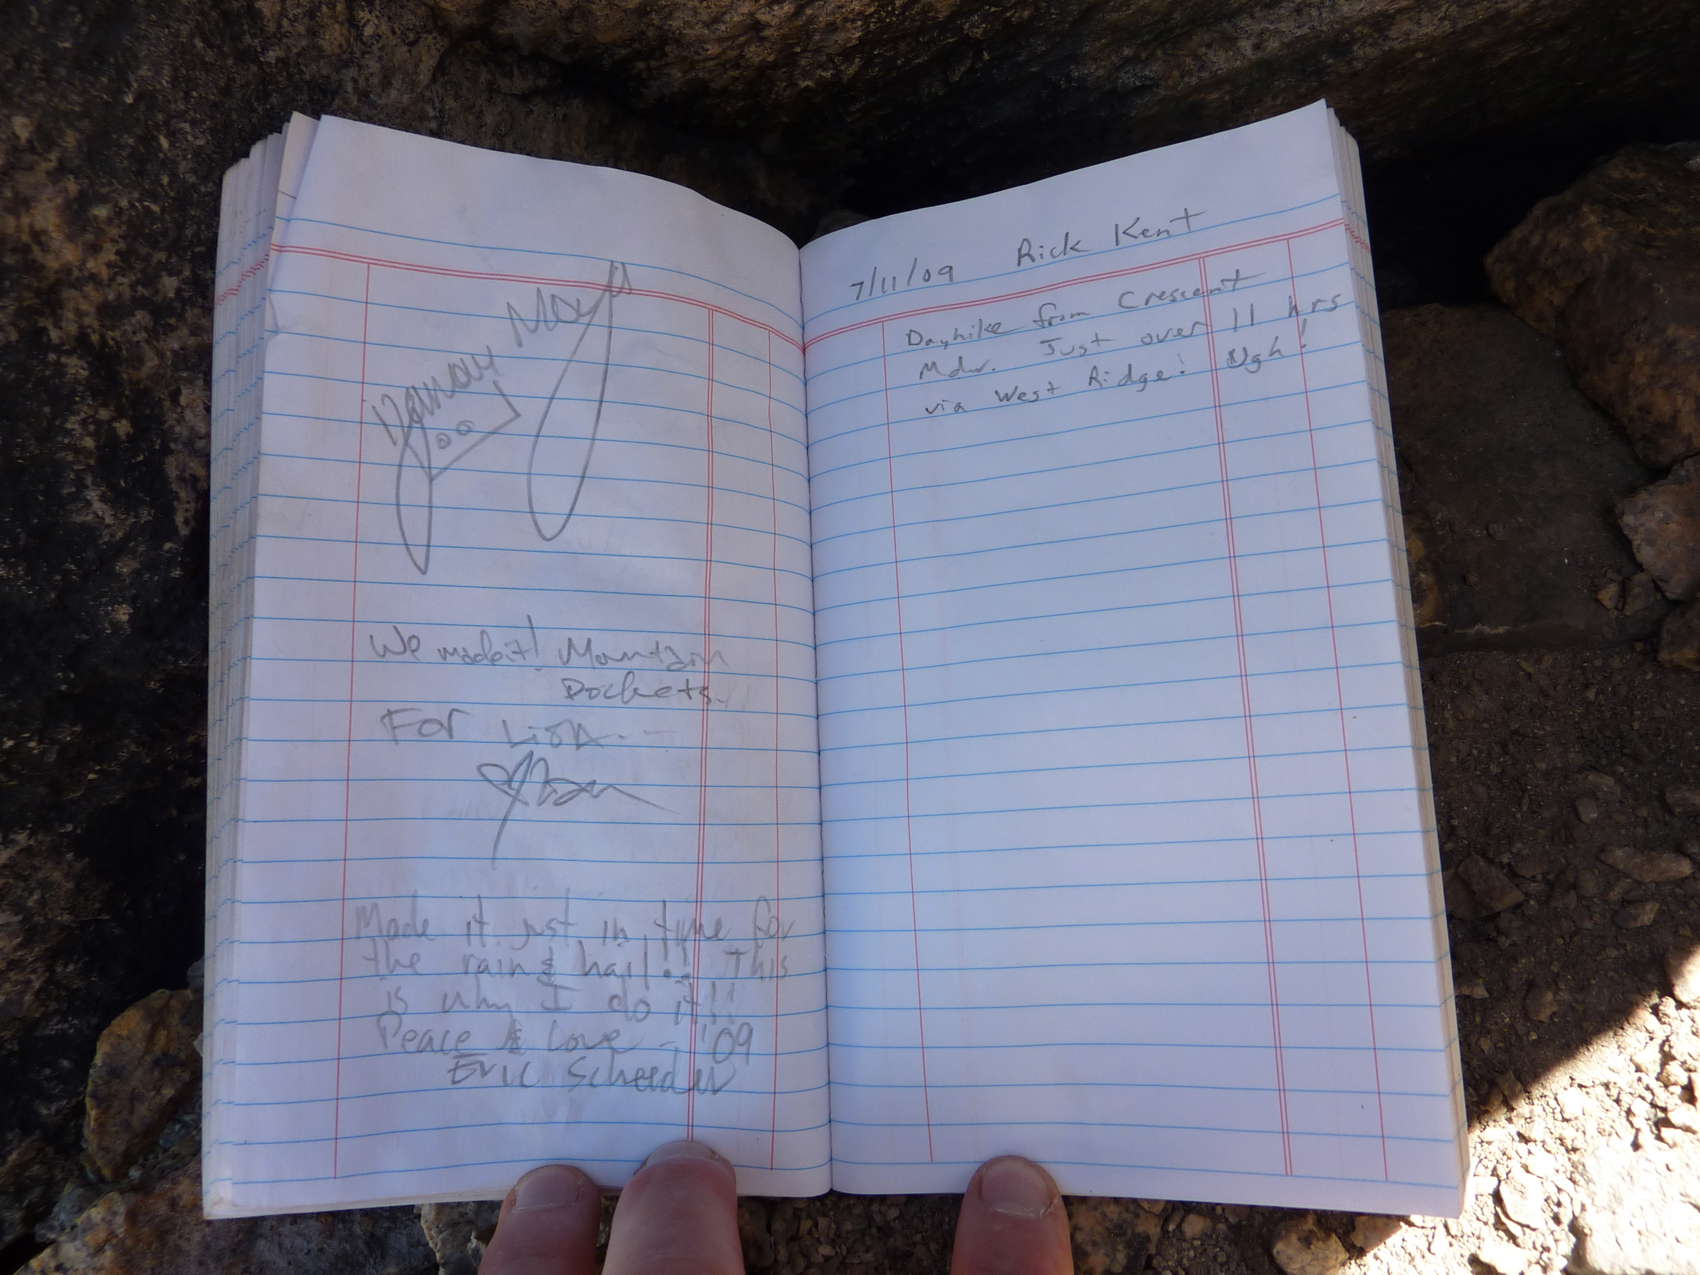 We made it! Mountain
For
Made it just in time for
the rain & hail!! This
is why I do it!!
Peace & Love - '09
Eric
7/11/09 Rick Kent
Dayhike from Crescent
Mdw. Just over 11 hrs
via West Ridge! Ugh!